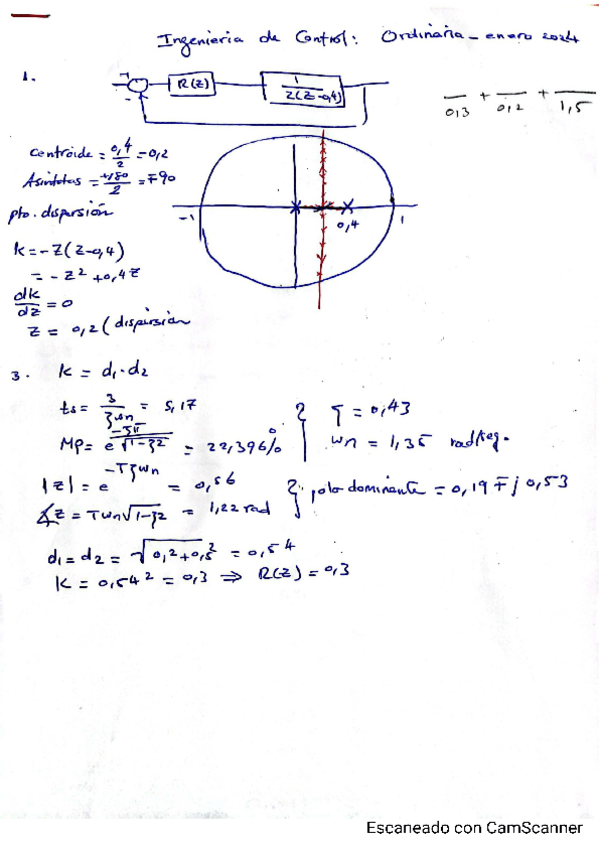 Ingenieria de Control: Ordinaria - enero 2024
1.
R(z)
1
z(z-0,4)
0,3 + 0,2 + 1,5
Centroide = 0,4/2 = 0,2
Asíntotas = +180/2 = ∓90
pto. dispersión
-1
0,4
1
k = -z(z-0,4)
= -z² + 0,4z
dk/dz = 0
z = 0,2 (dispersión
3. k = d₁·d₂
ts = 3/ζωn = 5,17
ζ = 0,43
Mp = e^(-ζπ/√1-ζ²) = 22,396%
ωn = 1,35 rad/seg.
|z| = e^(-Tζωn) = 0,56
polo dominante = 0,19 ∓ j 0,53
∡z = Tωn√1-ζ² = 1,22 rad
d₁ = d₂ = √0,2+0,5² = 0,54
k = 0,54² = 0,3 ⇒ R(z) = 0,3
Escaneado con CamScanner